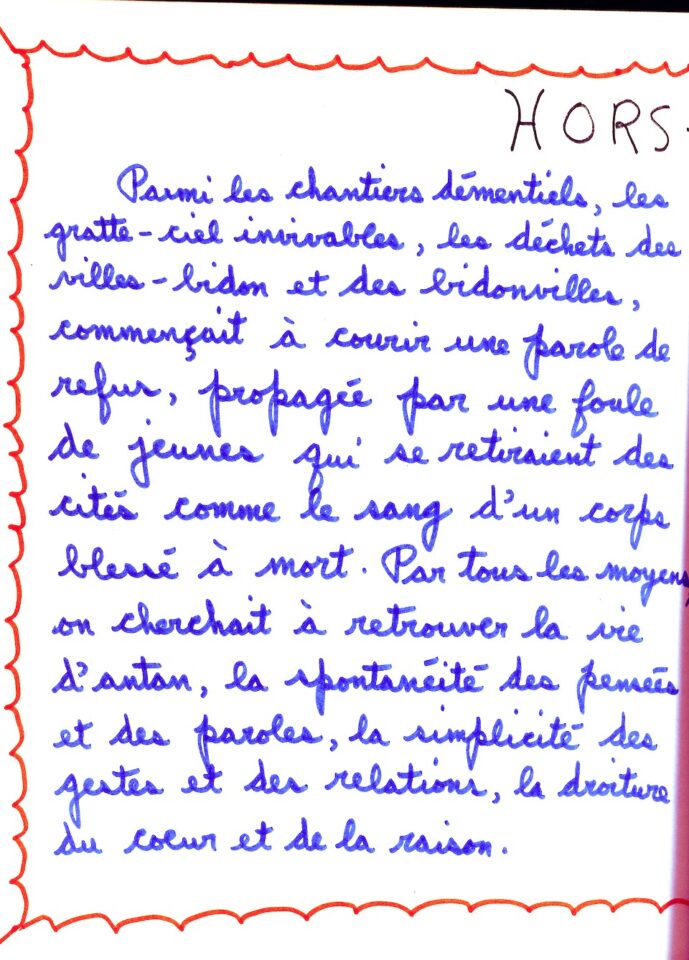 HORS-
Parmi les chantiers démentiels, les
gratte-ciel invivables, les déchets des
villes-bidon et des bidonvilles,
commençait à courir une parole de
refus, propagée par une foule
de jeunes qui se retiraient des
cités comme le sang d'un corps
blessé à mort. Par tous les moyens,
on cherchait à retrouver la vie
d'antan, la spontanéité des pensées
et des paroles, la simplicité des
gestes et des relations, la droiture
du coeur et de la raison.